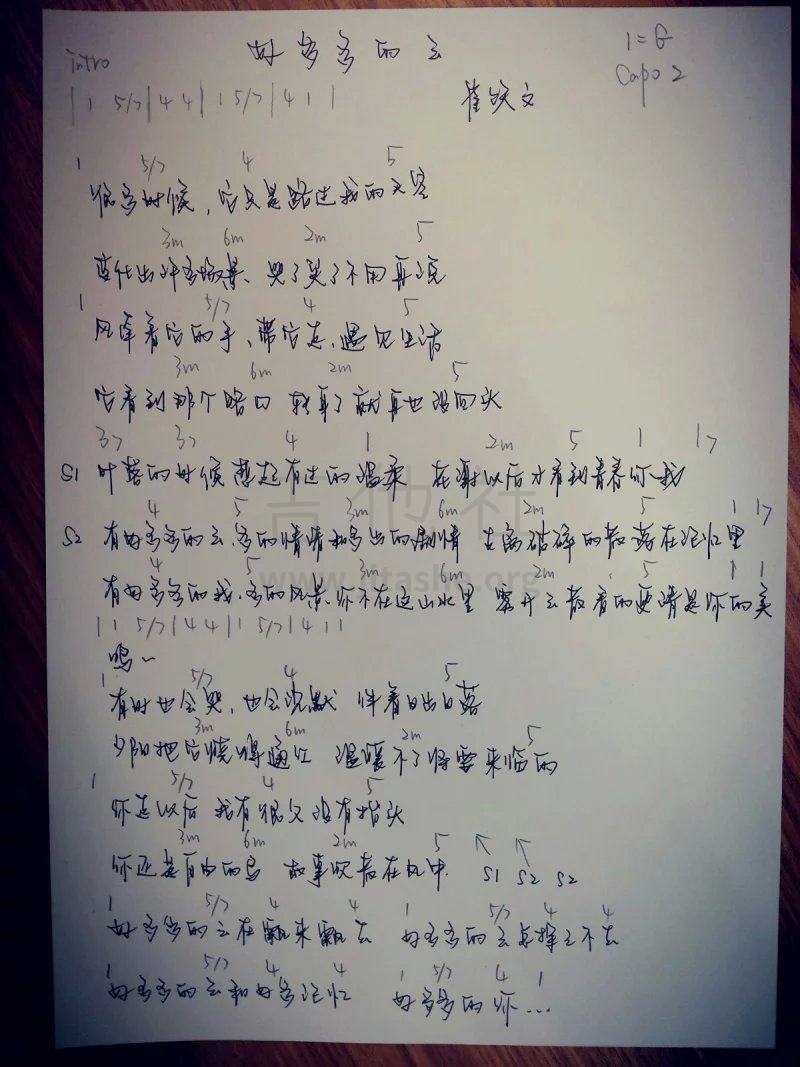 好多多的云
1=G
intro
Capo 2
| 1 5/7 | 4 4 | 1 5/7 | 4 1 |
崔跃文
1 5/7 4 5
很多时候，它只是路过我的天空
3m 6m 2m 5
变化出许多场景、哭了笑了不用再说
1 5/7 4 5
风牵着它的手、带它走、遇见生活
3m 6m 2m 5
它看到那个路口 转身了就再也没回头
37 37 4 1 2m 5 1 17
S1 叶落的时候想起有过的温柔 花谢以后才看到青春你我
4 5 3m 6m 2m 5 1 17
S2 有好多多的云、多的情绪和多出的剧情 支离破碎的散落在记忆里
4 5 3m 6m 2m 5 1 1
有好多多的我、多的风景、你不在这山水里 雾开云散看的更清是你的美
| 1 5/7 | 4 4 | 1 5/7 | 4 1 1
呜~
1 5/7 4 5
有时也会哭，也会沉默 伴着日出日落
3m 6m 2m 5
夕阳把它烧得通红 温暖不了将要来临的
1 5/7 4 5
你走以后 我有很久没有抬头
3m 6m 2m 5
你还是自由的鸟 故事吹散在风中. S1 S2 S2
1 5/7 4 4 1 5/7 4 4
好多多的云在飘来飘去 好多多的云总挥之不去
1 5/7 4 4 1 5/7 4 1
好多多的云和好多记忆 好多多的你...
吉他社
www.jitashe.org